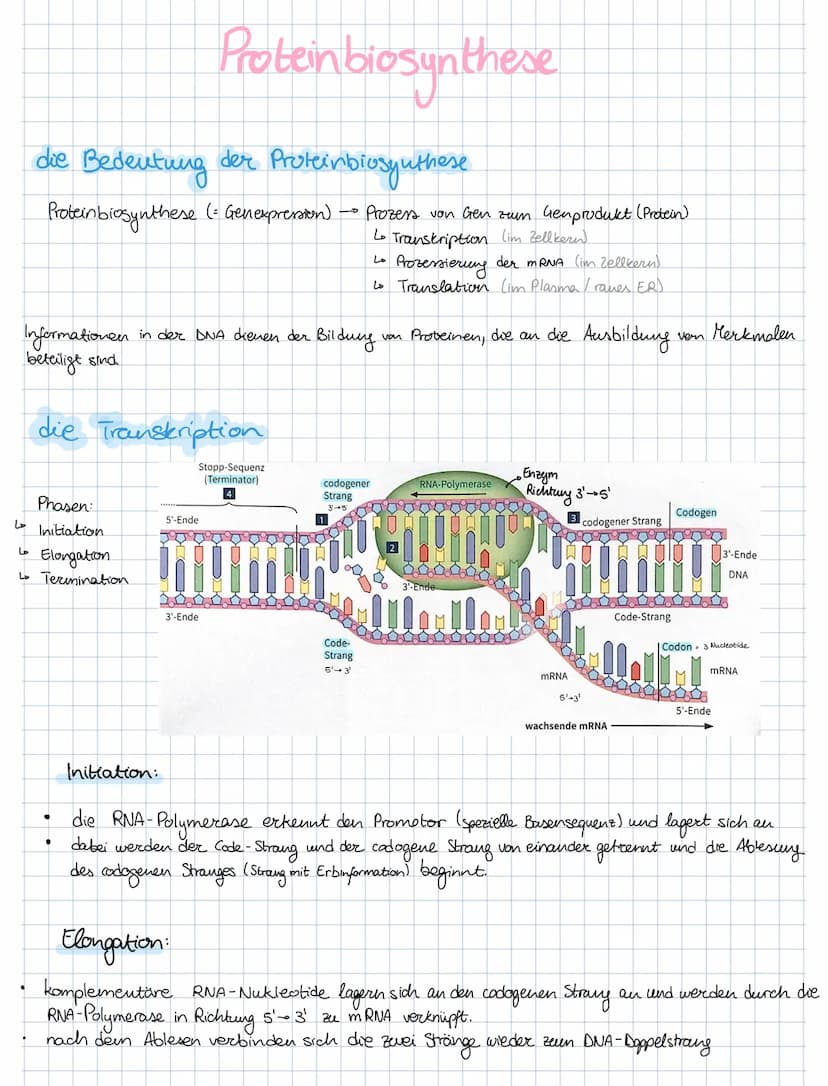 Proteinbiosynthese
die Bedeutung der Proteinbiosynthese
Proteinbiosynthese (= Genexpression) → Prozess von Gen zum Genprodukt (Protein)
↳ Transkription (im Zellkern)
↳ Prozessierung der mRNA (im Zellkern)
↳ Translation (im Plasma / raues ER)
Informationen in der DNA dienen der Bildung von Proteinen, die an die Ausbildung von Merkmalen
beteiligt sind
die Transkription
Phasen:
↳ Initiation
↳ Elongation
↳ Termination
Stopp-Sequenz
(Terminator)
4
5'-Ende
3'-Ende
codogener
Strang
3'→5'
1
RNA-Polymerase
Enzym
Richtung 3'→5'
2
3'-Ende
3
codogener Strang
Codogen
3'-Ende
DNA
Code-Strang
Code-
Strang
5'→3'
Codon = 3 Nucleotide
mRNA
mRNA
5'→3'
5'-Ende
wachsende mRNA
Initiation:
• die RNA-Polymerase erkennt den Promotor (spezielle Basensequenz) und lagert sich an
• dabei werden der Code-Strang und der codogene Strang von einander getrennt und die Ablesung
des codogenen Stranges (Strang mit Erbinformation) beginnt.
Elongation:
• komplementäre RNA-Nukleotide lagern sich an den codogenen Strang an und werden durch die
RNA-Polymerase in Richtung 5'→3' zu mRNA verknüpft.
• nach dem Ablesen verbinden sich die zwei Stränge wieder zum DNA-Doppelstrang